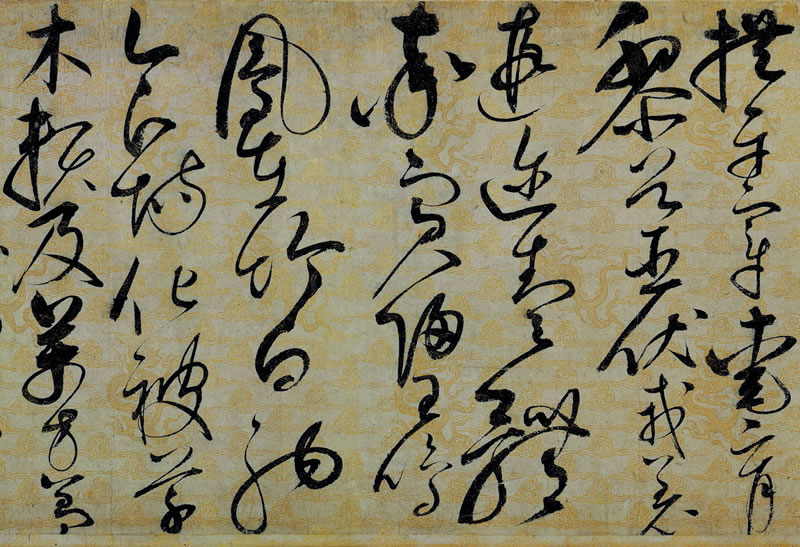 拱平章愛育
黎首臣伏戎羌
遐邇壹體
率賓歸王鳴
鳳在樹白駒
食場化被草
木賴及萬方蓋